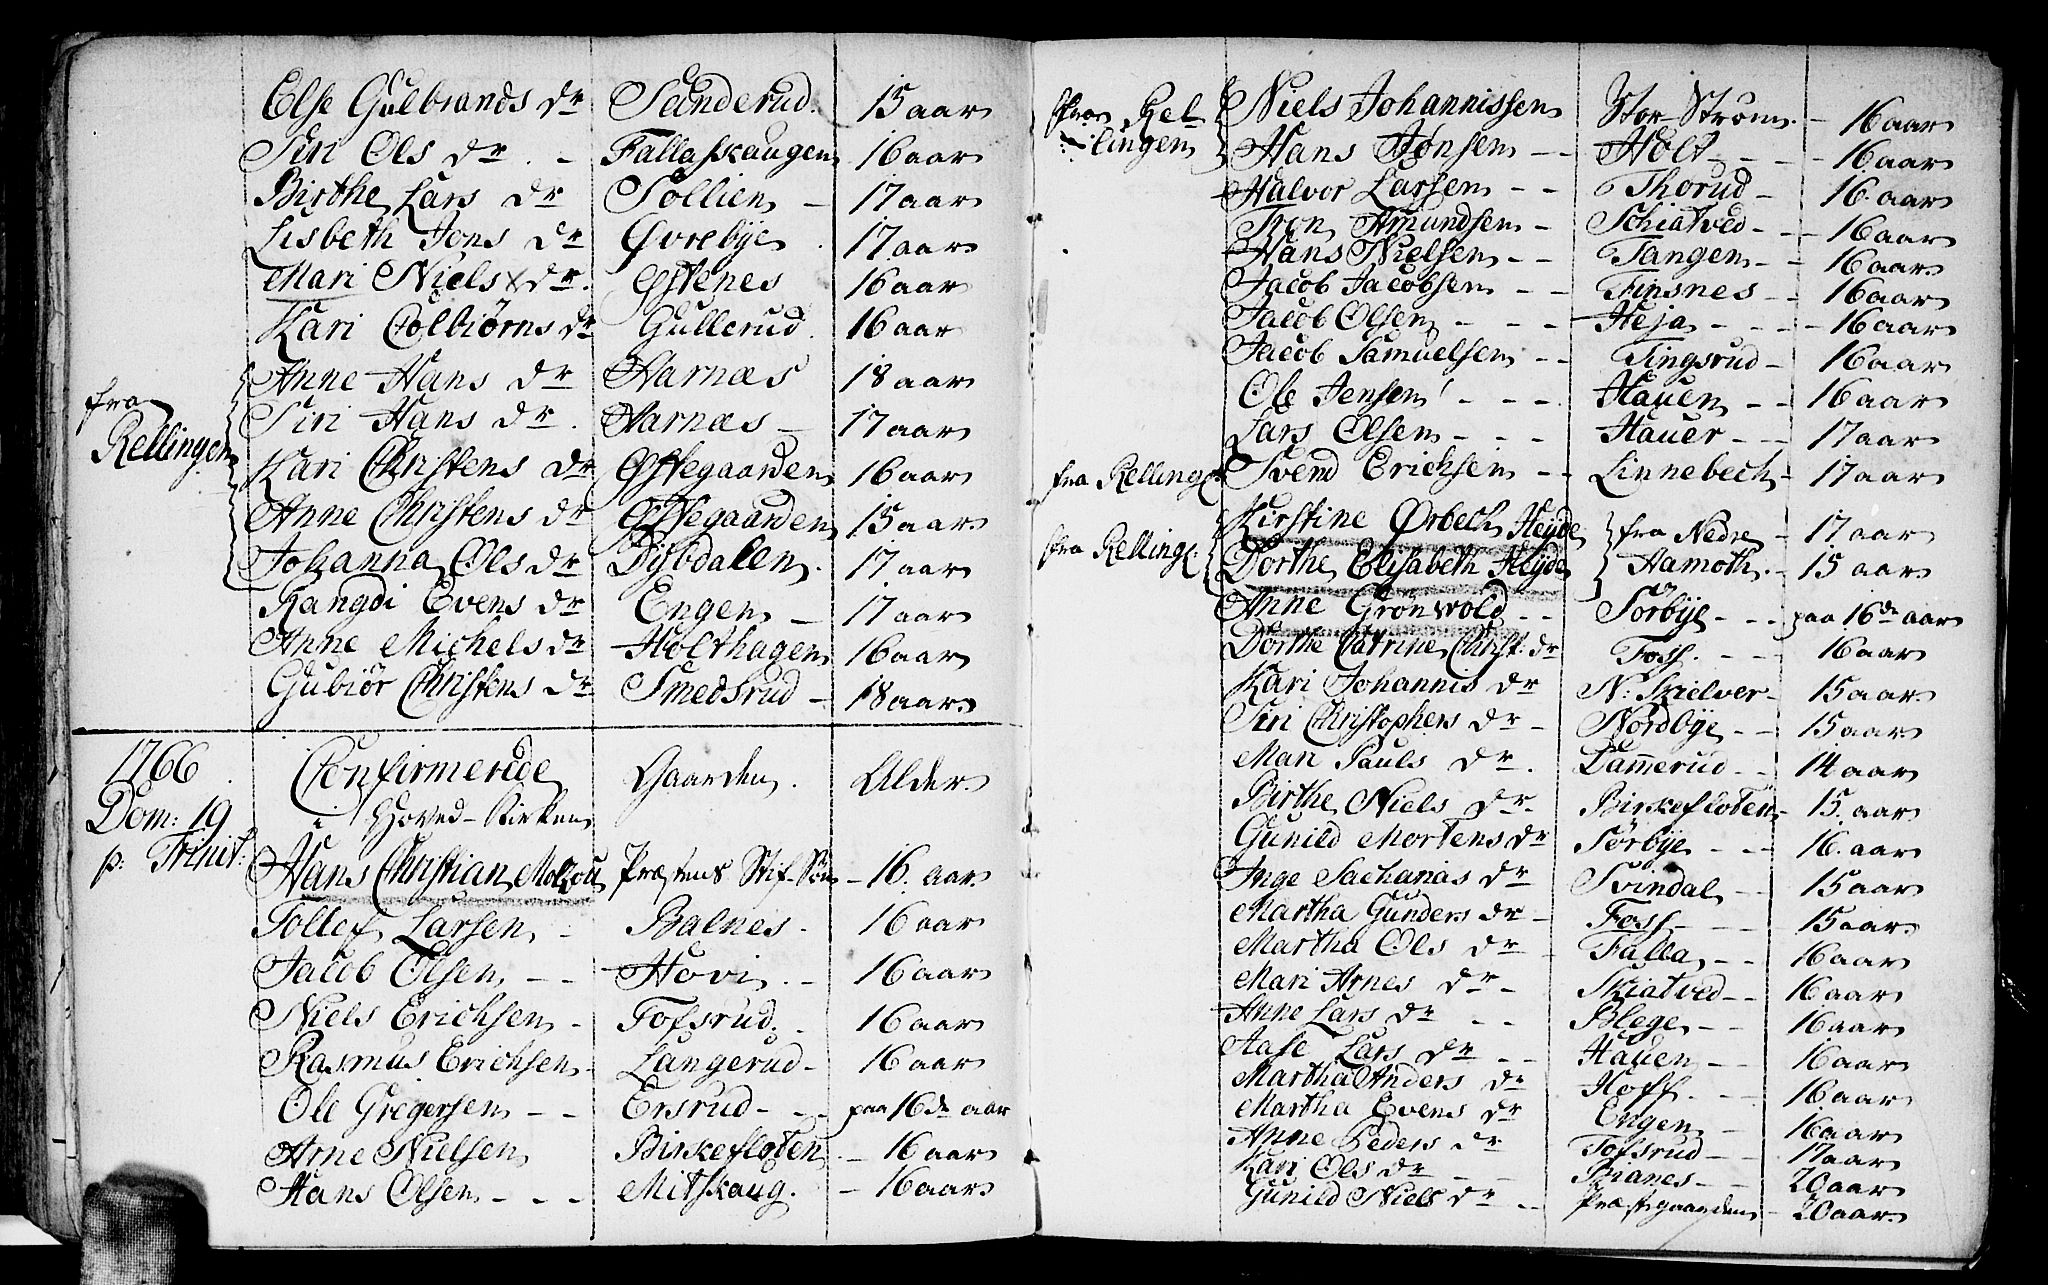 Else Gulbrands dr Sanderud. 15 aar
Siri Ols dr. - Fallaskaugen 16 aar
Birthe Lars dr Sollien - 17 aar
Lisbeth Jons dr Øvrebÿe. 17 aar
Mari Niels dr. Østenes 16 aar
Kari Colbiørns dr Gullerud. 16 aar
fra
Rellingen
Anne Hans dr Varnæs 18 aar
Siri Hans dr. Varnæs - 17 aar
Kari Christens dr Østegaarden 16 aar
Anne Christens dr Østegaarden 15 aar
Johanna Ols dr Dÿsdalen. 17 aar
Rangdi Evens dr Engen - 17 aar
Anne Michels dr Holthagen 16 aar
Gubiør Christens dr Smedsrud - 18 aar
1766. Confirmerede Gaarden. Alder.
Dom: 19 i Hoved-Kirken
p: Trinit:
Hans Christian Præstens Stif-Søn - 16. aar.
Tollef Larsen - Balnes. 16 aar
Jacob Olsen - - Hovi. - 16 aar
Niels Erichsen - Tofsrud. - 16 aar
Rasmus Erichsen - Langerud - 16 aar
Ole Gregersen - - Ersrud - - - paa 16de aar
Arne Nielsen Birkefloten. - 16 aar
Hans Olsen - - - Mitskaug. - 16 aar.
fra Rel-
lingen
Niels Johannissen Stor-Strøm. - 16 aar
Hans Jønsen - - Holt - - - 16 aar
Halvor Larsen - - Thorud - 16. aar
Tron Amundsen - Schiatved - - - 16 aar
Hans Nielsen - - Tangen - - 16 aar.
Jacob Jacobsen - - Finsnes - - 16 aar
Jacob Olsen - - - Heja - - - - 16 aar
Jacob Samuelsen - - Tingsrud - 16 aar
Ole Jensen - - - Hauen - - 16 aar
Lars Olsen - - - Hauer - - 17 aar
fra Relling: Svend Erichsen - - Linnebech - 17 aar
fra Relling: Kirstine Ørbech Heyde fra Nedre - 17 aar
Dorthe Elisabeth Heÿde Aamoth. - 15 aar
Anne Grønwold - - Sørbÿe - - - paa 16de aar
Dorthe Catrine Christ: dr Foss. - - - 16 aar
Kari Johannis dr N: Skielver - 15 aar
Siri Christophers dr - Nordbÿe - - 15 aar
Mari Pauls dr. Dam̄erud - - 14 aar
Birthe Niels dr. Birkefloten - 15. aar
Gunild Mortens dr Sørbÿe - - - 16. aar
Inge Sacharias dr Svindal - - 15 aar
Martha Gunders dr - Foss - - - 15 aar.
Martha Ols dr - Falla - - 16 aar
Mari Arnes dr - Skiatved - - 16 aar
Anne Lars dr - - Blege - - 16 aar
Aase Lars dr - - Hauen - - 16 aar
Martha Anders dr Hoff. - - 16 aar
Martha Evens dr Engen - 16 aar
Anne Peders dr Tofsrud - - 17 aar
Kari Ols dr - - Bianes - - 20 aar
Gunild Niels dr - - Præstegaarden - 20 aar.